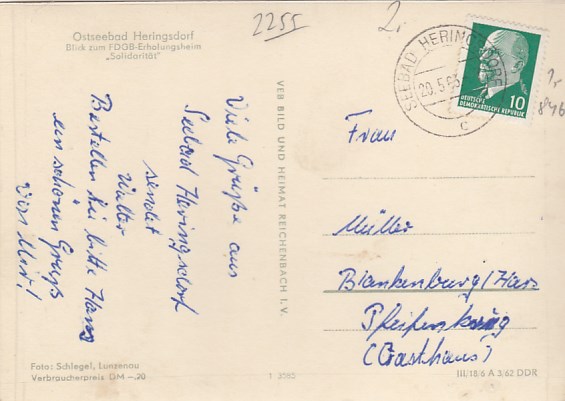 Ostseebad Heringsdorf
Blick zum FDGB-Erholungsheim
„Solidarität"
2255
2,-
SEEBAD HERINGSDORF
20.5.63
c
DEUTSCHE
DEMOKRATISCHE REPUBLIK
10
846
Viele Grüße aus
Seebad Heringsdorf
sendet
Walter
Bestellen Sie bitte Hans
ein schönen Gruß
von Mir!
VEB BILD UND HEIMAT REICHENBACH I. V.
Frau
Müller
Blankenburg/Harz
Pfeifenkrug
(Gasthaus)
Foto: Schlegel, Lunzenau
Verbraucherpreis DM –,20
III/18/6 A 3/62 DDR